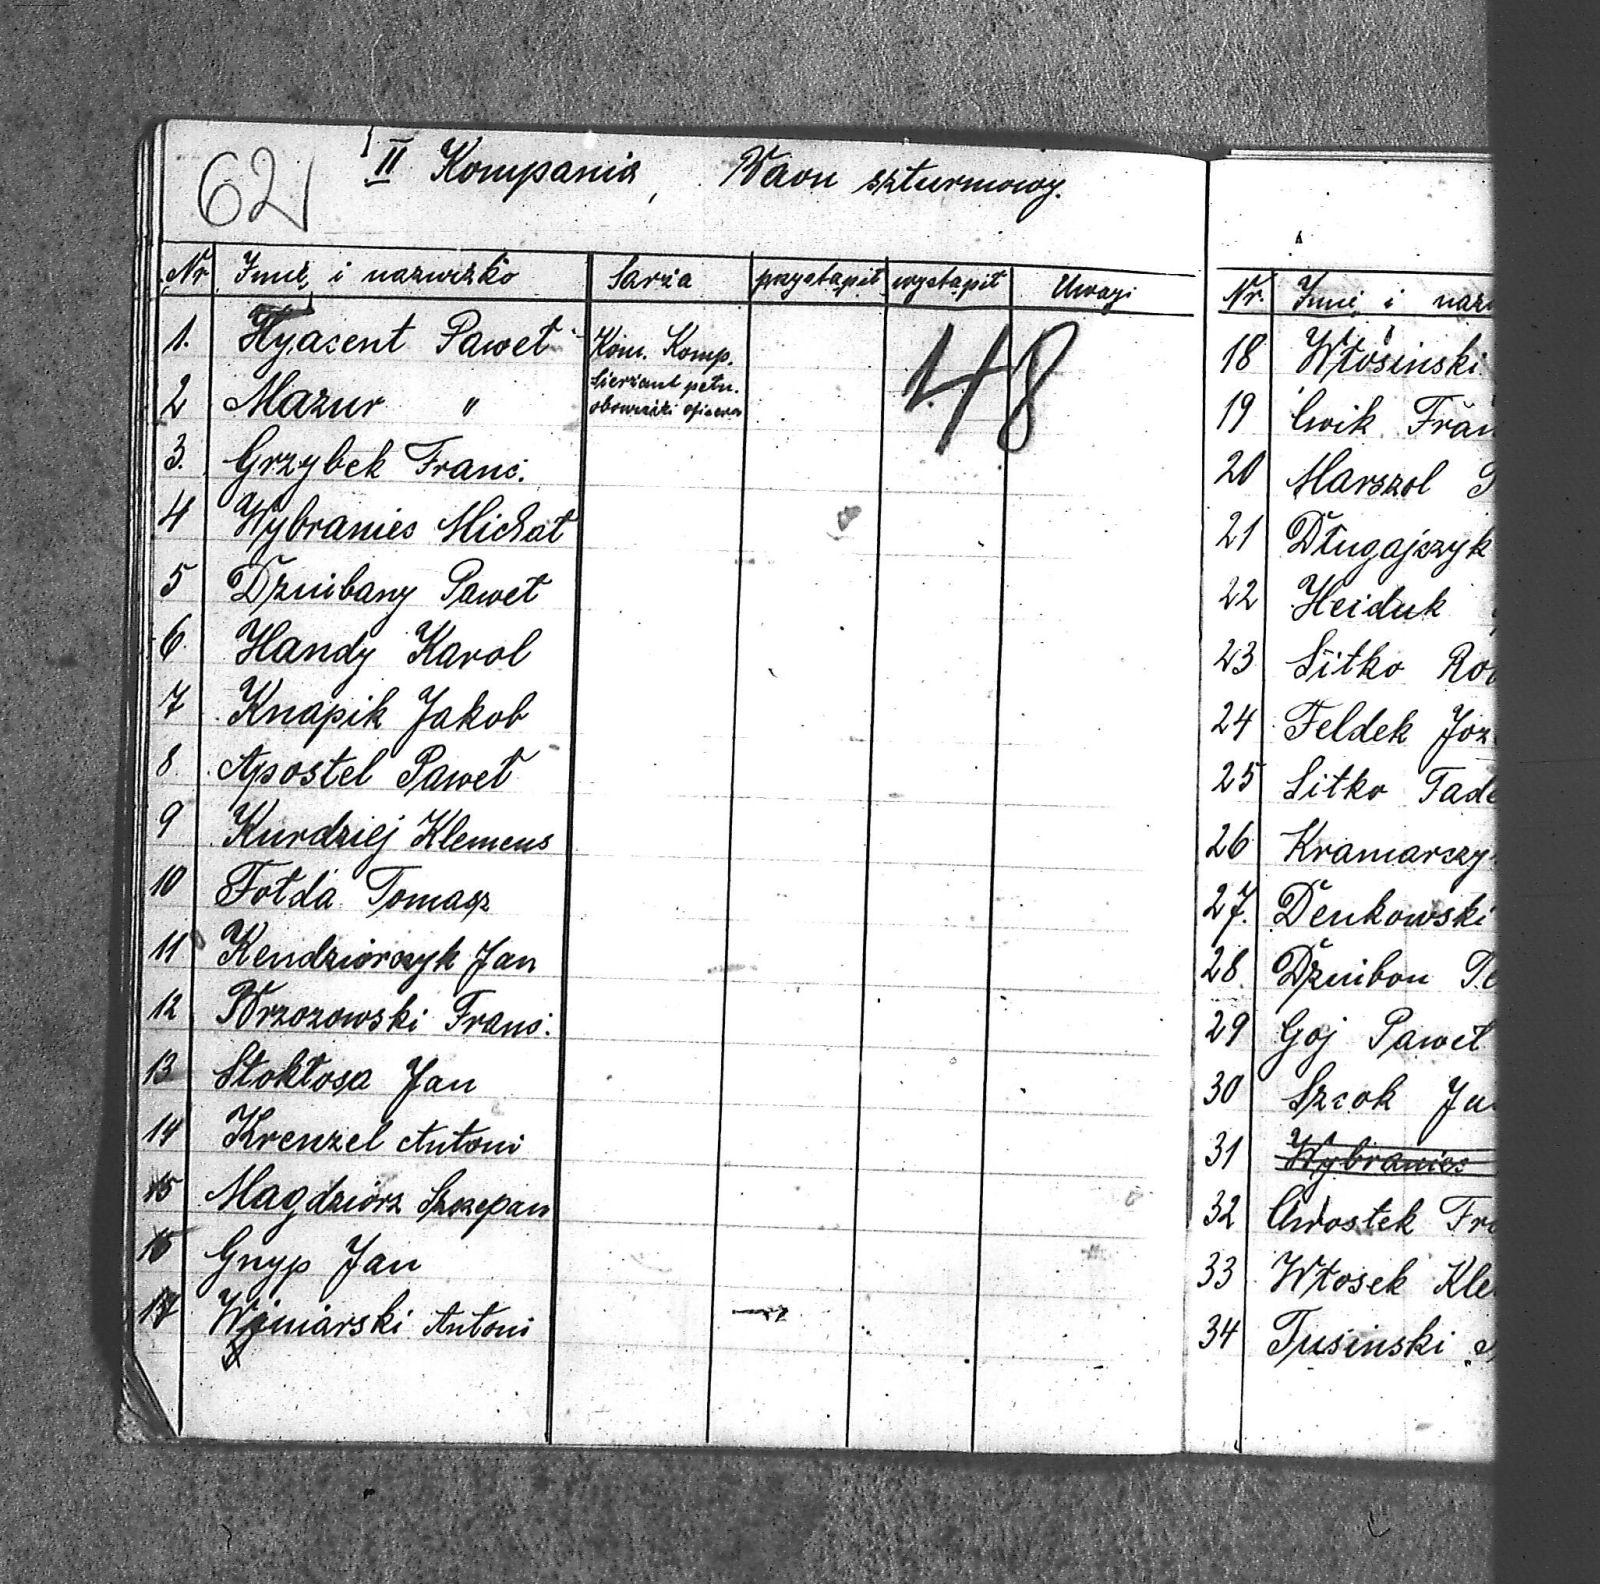 62
II Kompania, Baon szturmowy.
Nr Imię i nazwisko Sarża przystąpił wystąpił Uwagi
1. Hyacent Paweł Kom. Komp.
148
2 Mazur " Sierżant pełn. obowiązki oficera
3. Grzybek Franc.
4 Wybraniec Michał
5 Dziubany Paweł
6. Handy Karol
7 Knapik Jakob
8. Apostel Paweł
9 Kurdziej Klemens
10 Fołda Tomasz
11 Kendziorczyk Jan
12 Brzozowski Franc.
13 Stokłosa Jan
14 Krenzel Antoni
15 Magdziorz Szczepan
15 Gnyp Jan
17 Winiarski Antoni
Nr. Imię i
18 Włosinski
19 Cwik
20 Marszol
21 Długajczyk
22 Heiduk
23 Sitko
24 Feldek
25 Sitko
26
27. Denkowski
28. Dziubon
29 Goj Paweł
30 Szcok
31 Wybraniec
32 Chrostek
33 Włosek
34 Tusinski